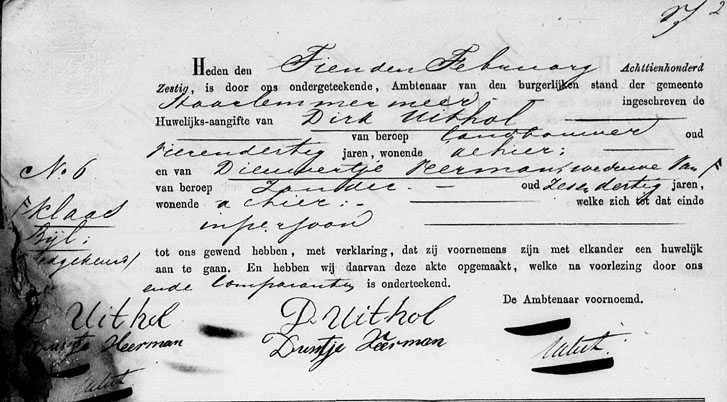 2
Heden den Tienden Februarij Achttienhonderd
Zestig, is door ons ondergeteekende, Ambtenaar van den burgerlijken stand der gemeente
Haarlemmermeer ingeschreven de
Huwelijks-aangifte van Dirk Uithol
van beroep Landbouwer oud
Vierendertig jaren, wonende alhier:
No. 6. en van Dieuwertje Heerman, weduwe van F
van beroep Zonder. oud Zesendertig jaren,
F Klaas
wonende alhier:- welke zich tot dat einde
Bijl:
in persoon
tot ons gewend hebben, met verklaring, dat zij voornemens zijn met elkander een huwelijk
aan te gaan. En hebben wij daarvan deze akte opgemaakt, welke na voorlezing door ons
ende Comparanten is onderteekend.
De Ambtenaar voornoemd.
D. Uithol D Uithol
Heerman Duwtje Heerman